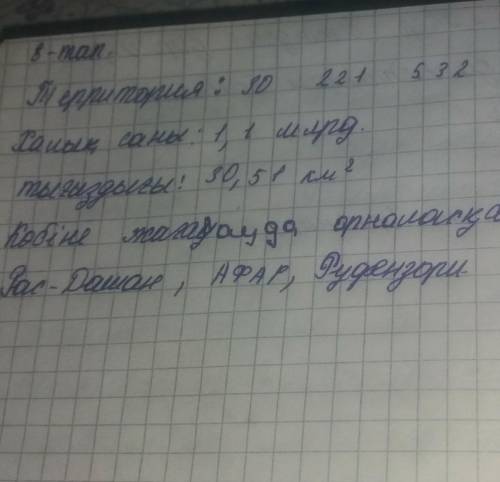 8-тап.
Территория: 30 221 532
Халық саны: 1,1 млрд.
тығыздысы: 30,51 км²
Көбіне жағалауда орналасқа
Рас-Дашан, АФАР, Рудензори